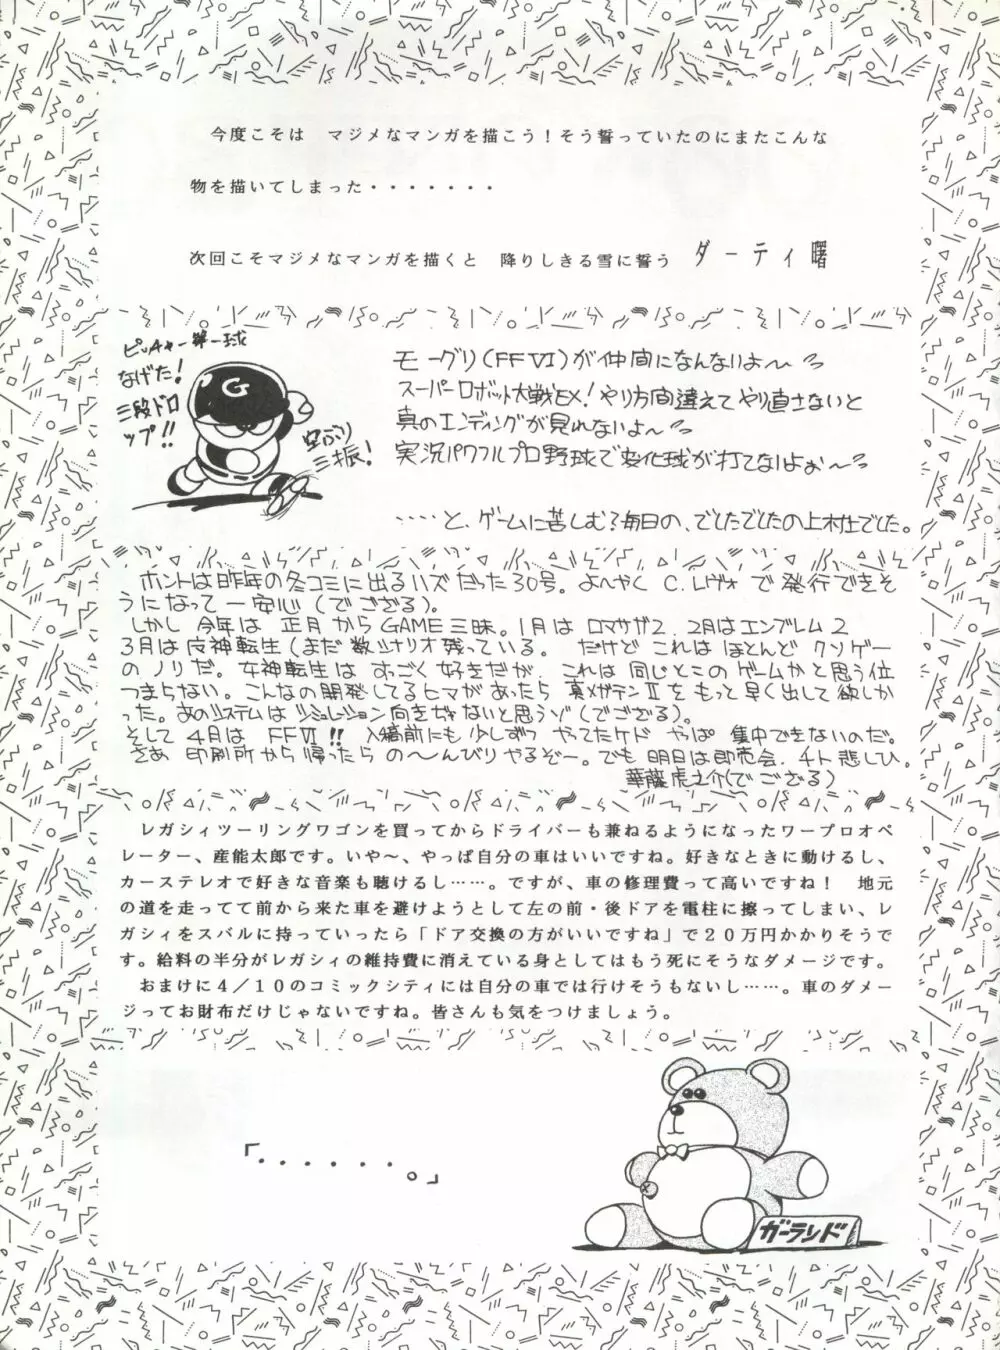 今度こそは　マジメなマンガを描こう！そう誓っていたのにまたこんな
物を描いてしまった・・・・・・・
次回こそマジメなマンガを描くと　降りしきる雪に誓う　ダーティ曙
ピッチャー第一球
なげた！
三段ドロ
ップ!!
G
空ぶり
三振！
モーグリ(FFⅥ)が仲間になんないよ〜
スーパーロボット大戦EX！やり方間違えてやり直さないと
真のエンディングが見れないよ〜
実況パワフルプロ野球で変化球が打てないよぉ〜
‥‥と、ゲームに苦しむ？毎日の、でしたでしたの上村土でした。
ホントは昨年の冬コミに出るハズだった30号。よ〜やく C.レヴォ で 発行できそ
うになって一安心（でござる）。
しかし 今年は 正月から GAME三昧。1月は ロマサガ2、2月はエンブレム2
3月は女神転生（まだ数シナリオ残っている。 だけど これは ほとんど クソゲー
のノリだ。女神転生は すっごく好きだが、これは 同じとこの ゲームかと思う位
つまらない。こんなの開発してるヒマがあったら 真メガテンⅡを もっと早く出して欲しか
った。あのシステムは シミュレーション向きぢゃないと思うゾ（でござる）。
そして 4月は FFⅥ!! 入稿前にも少しずつ やってたケド やっぱ 集中できないのだ。
さあ 印刷所から帰ったら の〜んびりやるぞー。でも 明日は即売会、チト悲しひ。
華藤虎之介(でござる)
　レガシィツーリングワゴンを買ってからドライバーも兼ねるようになったワープロオペ
レーター、産能太郎です。いや〜、やっぱ自分の車はいいですね。好きなときに動けるし、
カーステレオで好きな音楽も聴けるし……。ですが、車の修理費って高いですね！　地元
の道を走ってて前から来た車を避けようとして左の前・後ドアを電柱に擦ってしまい、レ
ガシィをスバルに持っていったら「ドア交換の方がいいですね」で２０万円かかりそうで
す。給料の半分がレガシィの維持費に消えている身としてはもう死にそうなダメージです。
　おまけに４／１０のコミックシティには自分の車では行けそうもないし……。車のダメー
ジってお財布だけじゃないですね。皆さんも気をつけましょう。
「・・・・・・・。」
ガーランド